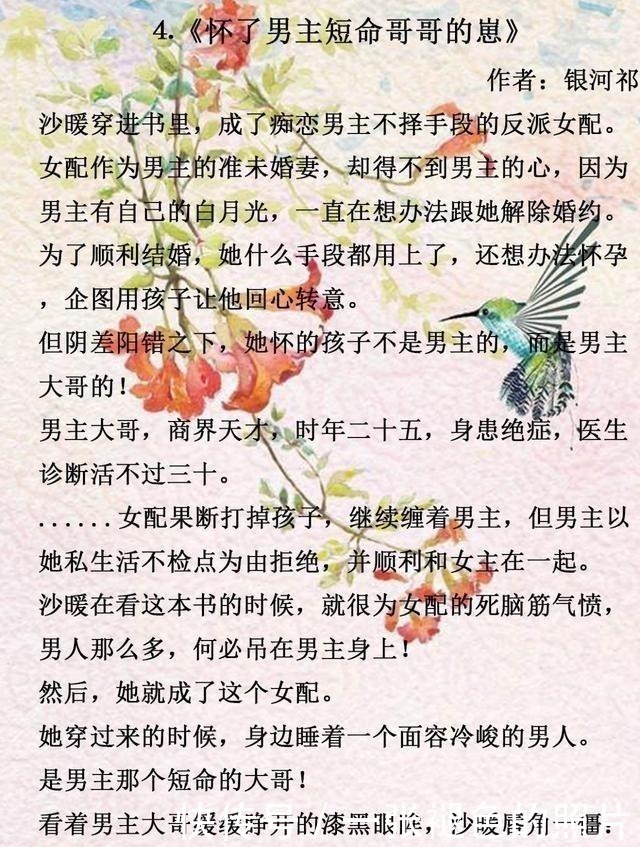 4.《怀了男主短命哥哥的崽》
作者：银河祁
沙暖穿进书里，成了痴恋男主不择手段的反派女配。
女配作为男主的准未婚妻，却得不到男主的心，因为
男主有自己的白月光，一直在想办法跟她解除婚约。
为了顺利结婚，她什么手段都用上了，还想办法怀孕
，企图用孩子让他回心转意。
但阴差阳错之下，她怀的孩子不是男主的，而是男主
大哥的！
男主大哥，商界天才，时年二十五，身患绝症，医生
诊断活不过三十。
......女配果断打掉孩子，继续缠着男主，但男主以
她私生活不检点为由拒绝，并顺利和女主在一起。
沙暖在看这本书的时候，就很为女配的死脑筋气愤，
男人那么多，何必吊在男主身上！
然后，她就成了这个女配。
她穿过来的时候，身边睡着一个面容冷峻的男人。
是男主那个短命的大哥！
看着男主大哥缓缓睁开的漆黑眼眸，沙暖唇角一僵：